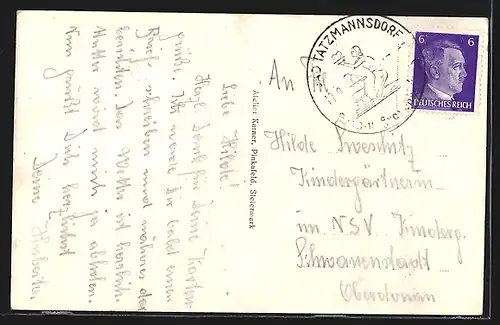 Liebe Hilde!
Herzl. Dank für Deine Karten-
grüße. Ich werde Dir bald einen
Brief schreiben und näheres dar
berichten. Das Wetter ist herrlich.
Mutter wird mich ja abholen.
Nun grüßt Dich herzlichst
Deine
Atelier Karner, Pinkafeld, Steiermark
TATZMANNSDORF
6 6
DEUTSCHES REICH
An
Hilde
Kindergärtnerin
im NSV. Kinderg.
Schwanenstadt
Oberdonau